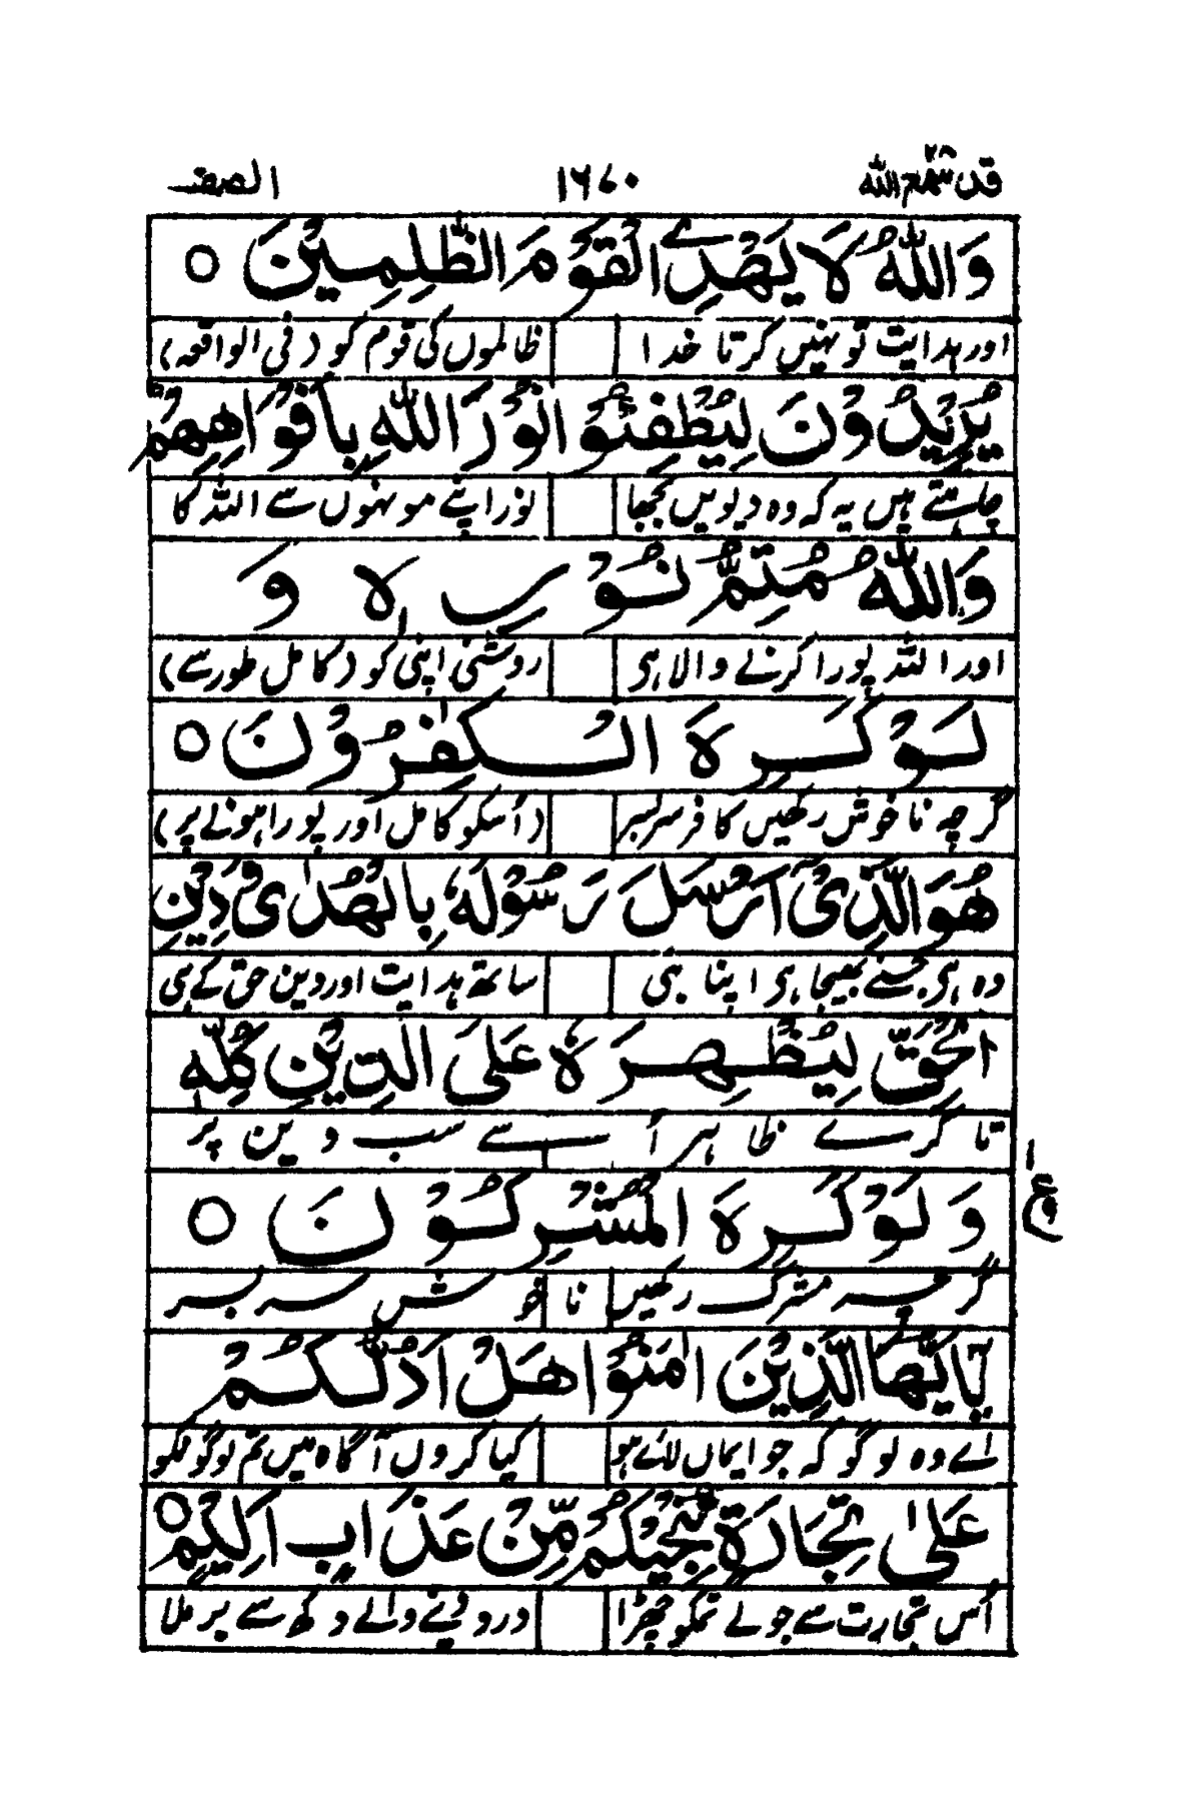 قد سمع الله ٢٨ ١٦٧٠ الصف
وَاللّٰهُ لَا يَهْدِے الْقَوْمَ الظّٰلِمِيْنَ ○
اور ہدایت تو نہیں کرتا خدا ظالموں کی قوم کو (فی الواقعہ)
يُرِيْدُوْنَ لِيُطْفِئُوْا نُوْرَ اللّٰهِ بِاَفْوَاهِهِمْ
چاہتے ہیں یہ کہ وہ دیویں بجھا نور اپنے مونہوں سے اللہ کا
وَاللّٰهُ مُتِمُّ نُوْرِهٖ وَ
اور اللہ پورا کرنے والا ہی روشنی اپنی کو (کامل طور سے)
لَوْ كَرِهَ الْكٰفِرُوْنَ ○
گرچہ ناخوش رکھیں کافر سربسر (اُسکو کامل اور پورا ہونے پر)
هُوَ الَّذِىْٓ اَرْسَلَ رَسُوْلَهٗ بِالْهُدٰى وَدِيْنِ
وہ ہی جسنے بھیجا ہی اپنا ہی ساتھ ہدایت اور دین حق کے ہی
الْحَقِّ لِيُظْهِرَهٗ عَلَى الدِّيْنِ كُلِّهٖ
تا کرے ظاہر اُسے سب دین پر
وَ لَوْ كَرِهَ الْمُشْرِكُوْنَ ○
گرچہ مشرک رکھیں ناخوش سربسر
يٰٓاَيُّهَا الَّذِيْنَ اٰمَنُوْا هَلْ اَدُلُّكُمْ
اے وہ لوگو کہ جو ایماں لائے ہو کیا کروں آگاہ میں تم لوگونکو
عَلٰى تِجَارَةٍ تُنْجِيْكُمْ مِّنْ عَذَابٍ اَلِيْمٍ ○
اُس تجارت سے جو لے تمکو چھڑا درد دینے والے دکھ سے بر ملا